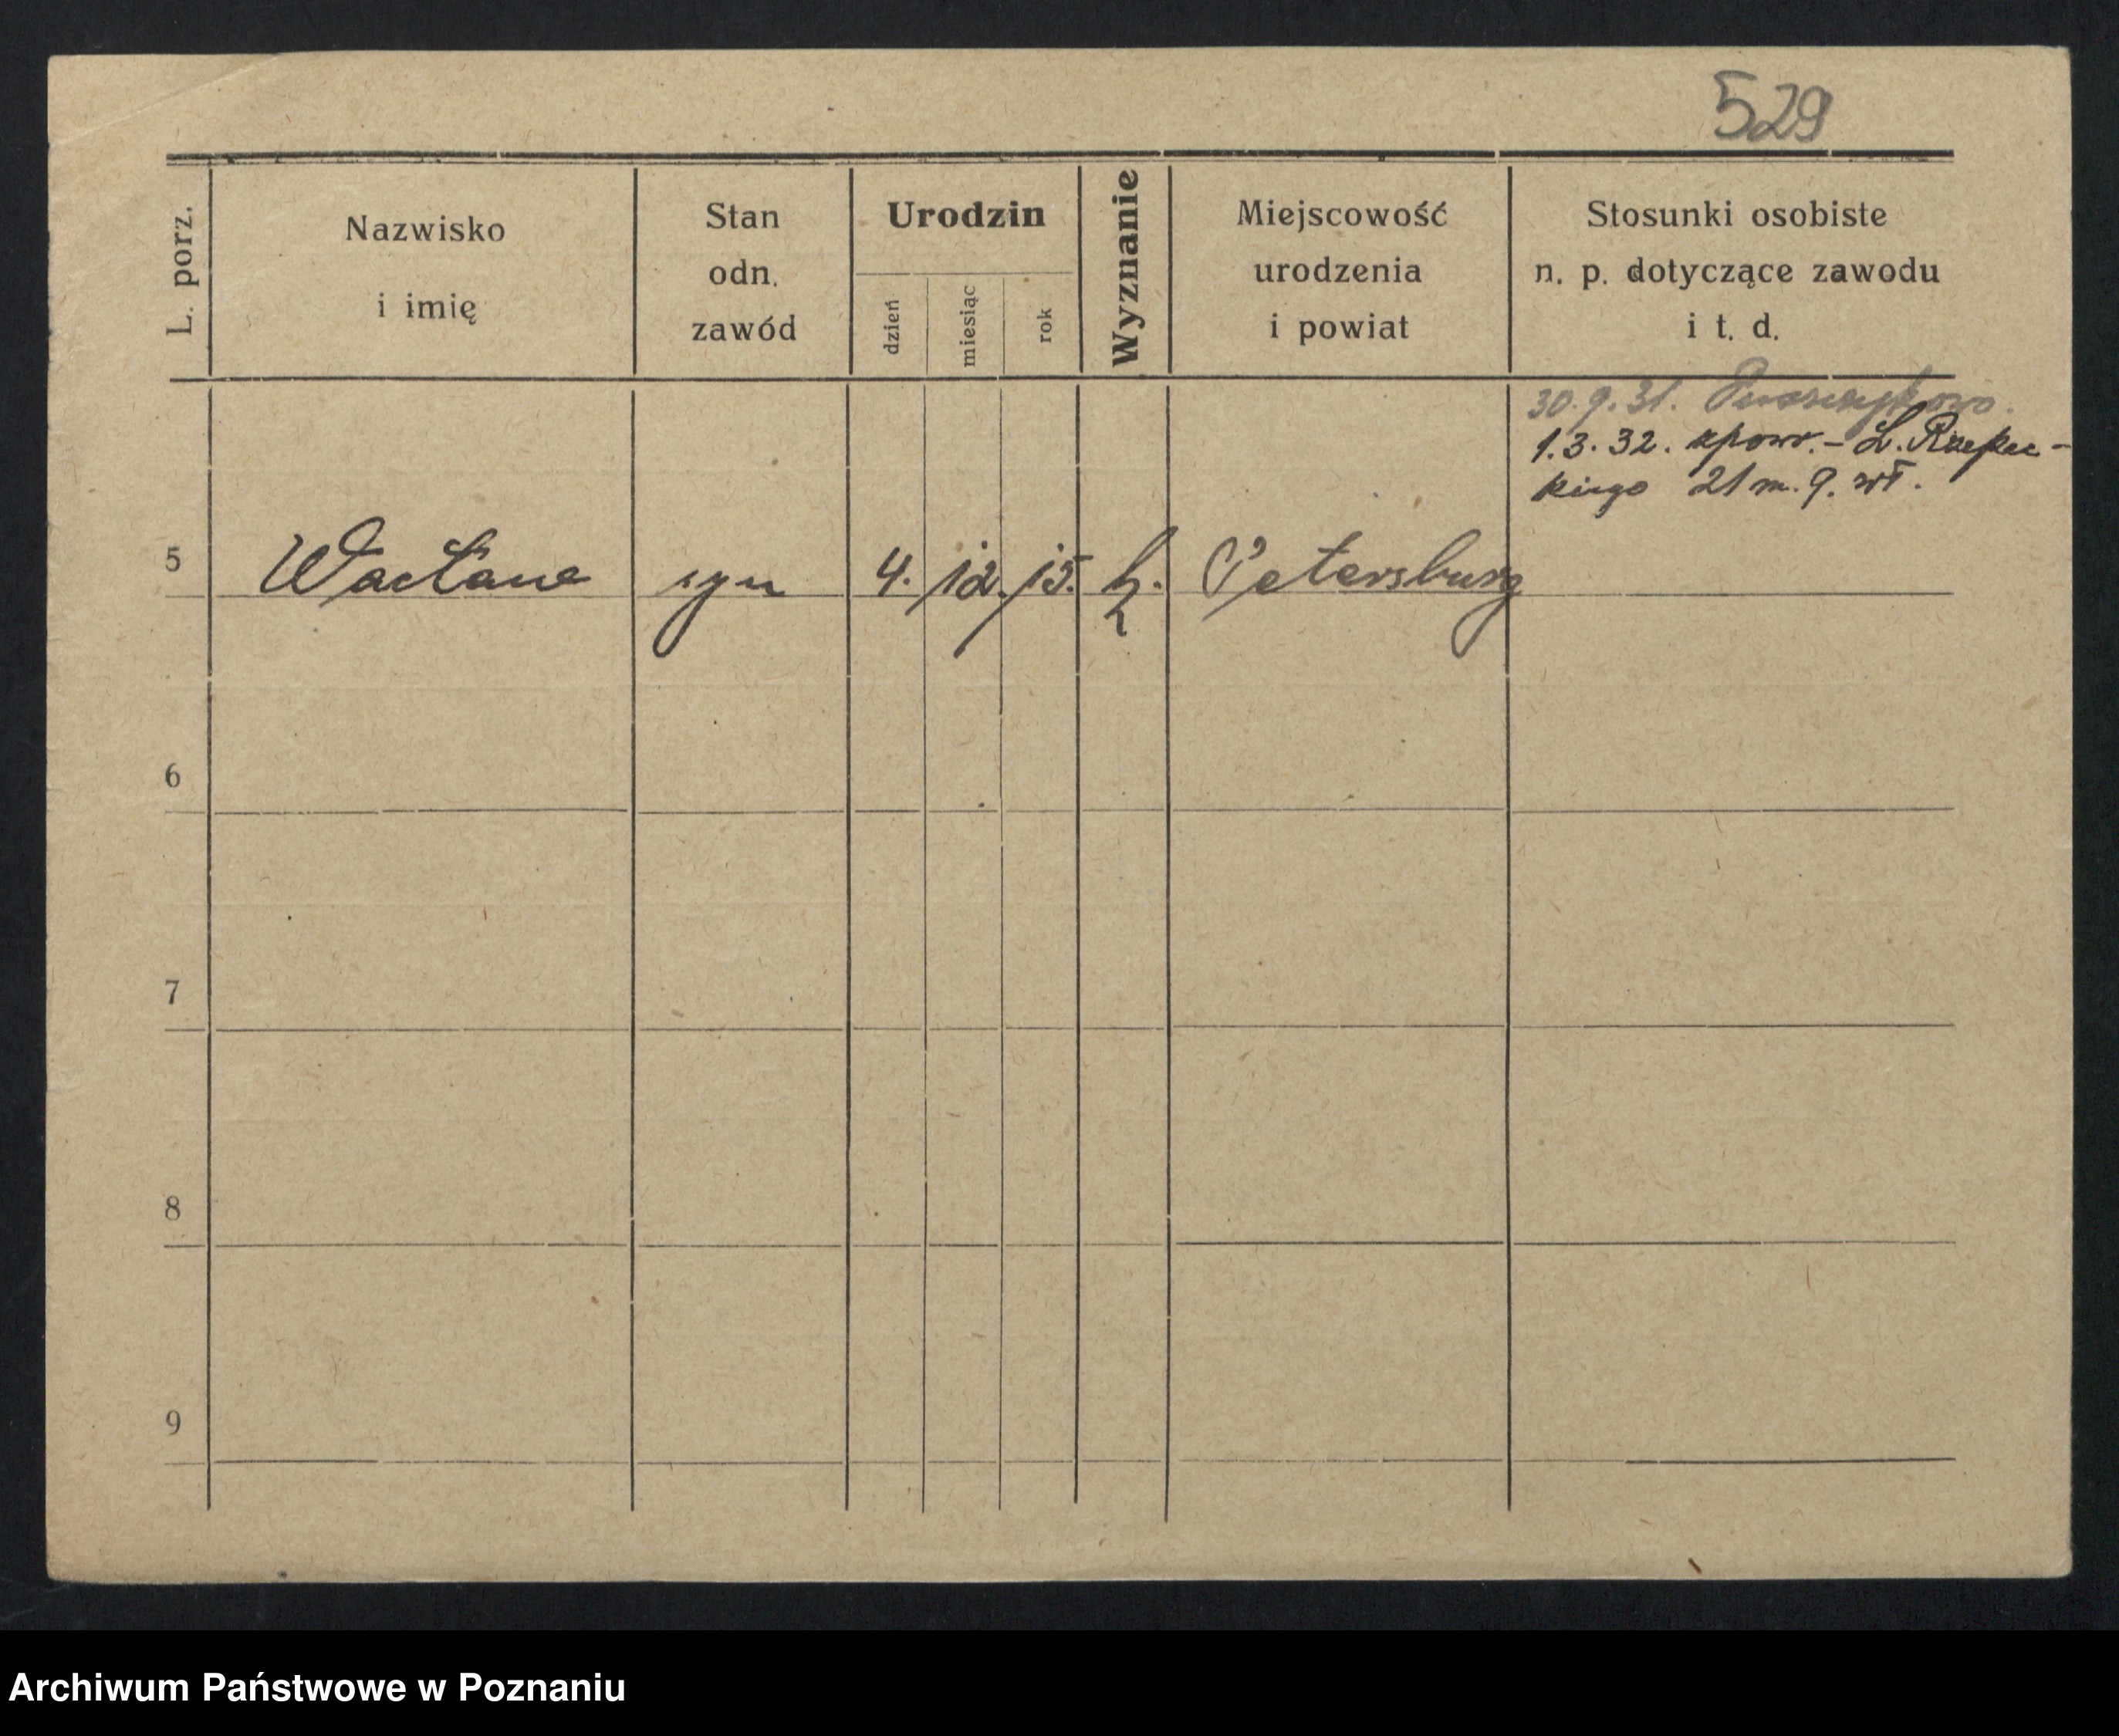 529
L. porz.
Nazwisko
i imię
Stan
odn.
zawód
Urodzin
dzień
miesiąc
rok
Wyznanie
Miejscowość
urodzenia
i powiat
Stosunki osobiste
n. p. dotyczące zawodu
i t. d.
30.9.31. Puszczykowo.
1.3.32. zpowr. - L. Rzepec-
kiego 21 m. 9. wł.
5 Wacław syn 4. 12. 15. k. Petersburg
6
7
8
9
Archiwum Państwowe w Poznaniu